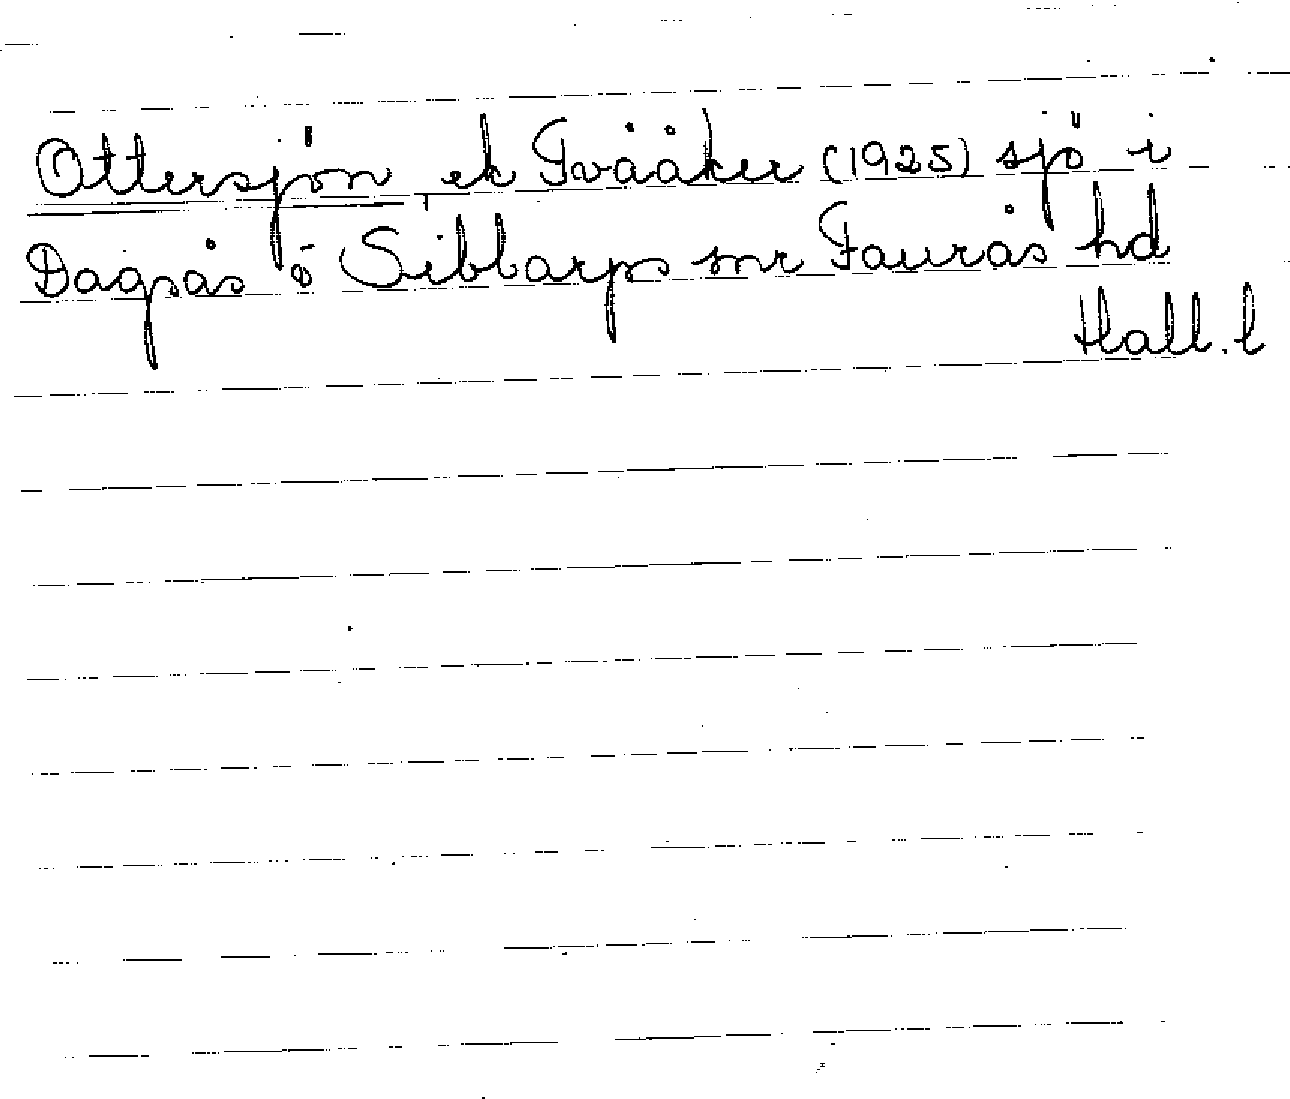 Ottersjön ek Tvååker (1925) sjö i
Dagsås ö Sibbarps snr Faurås hd
Hall. l